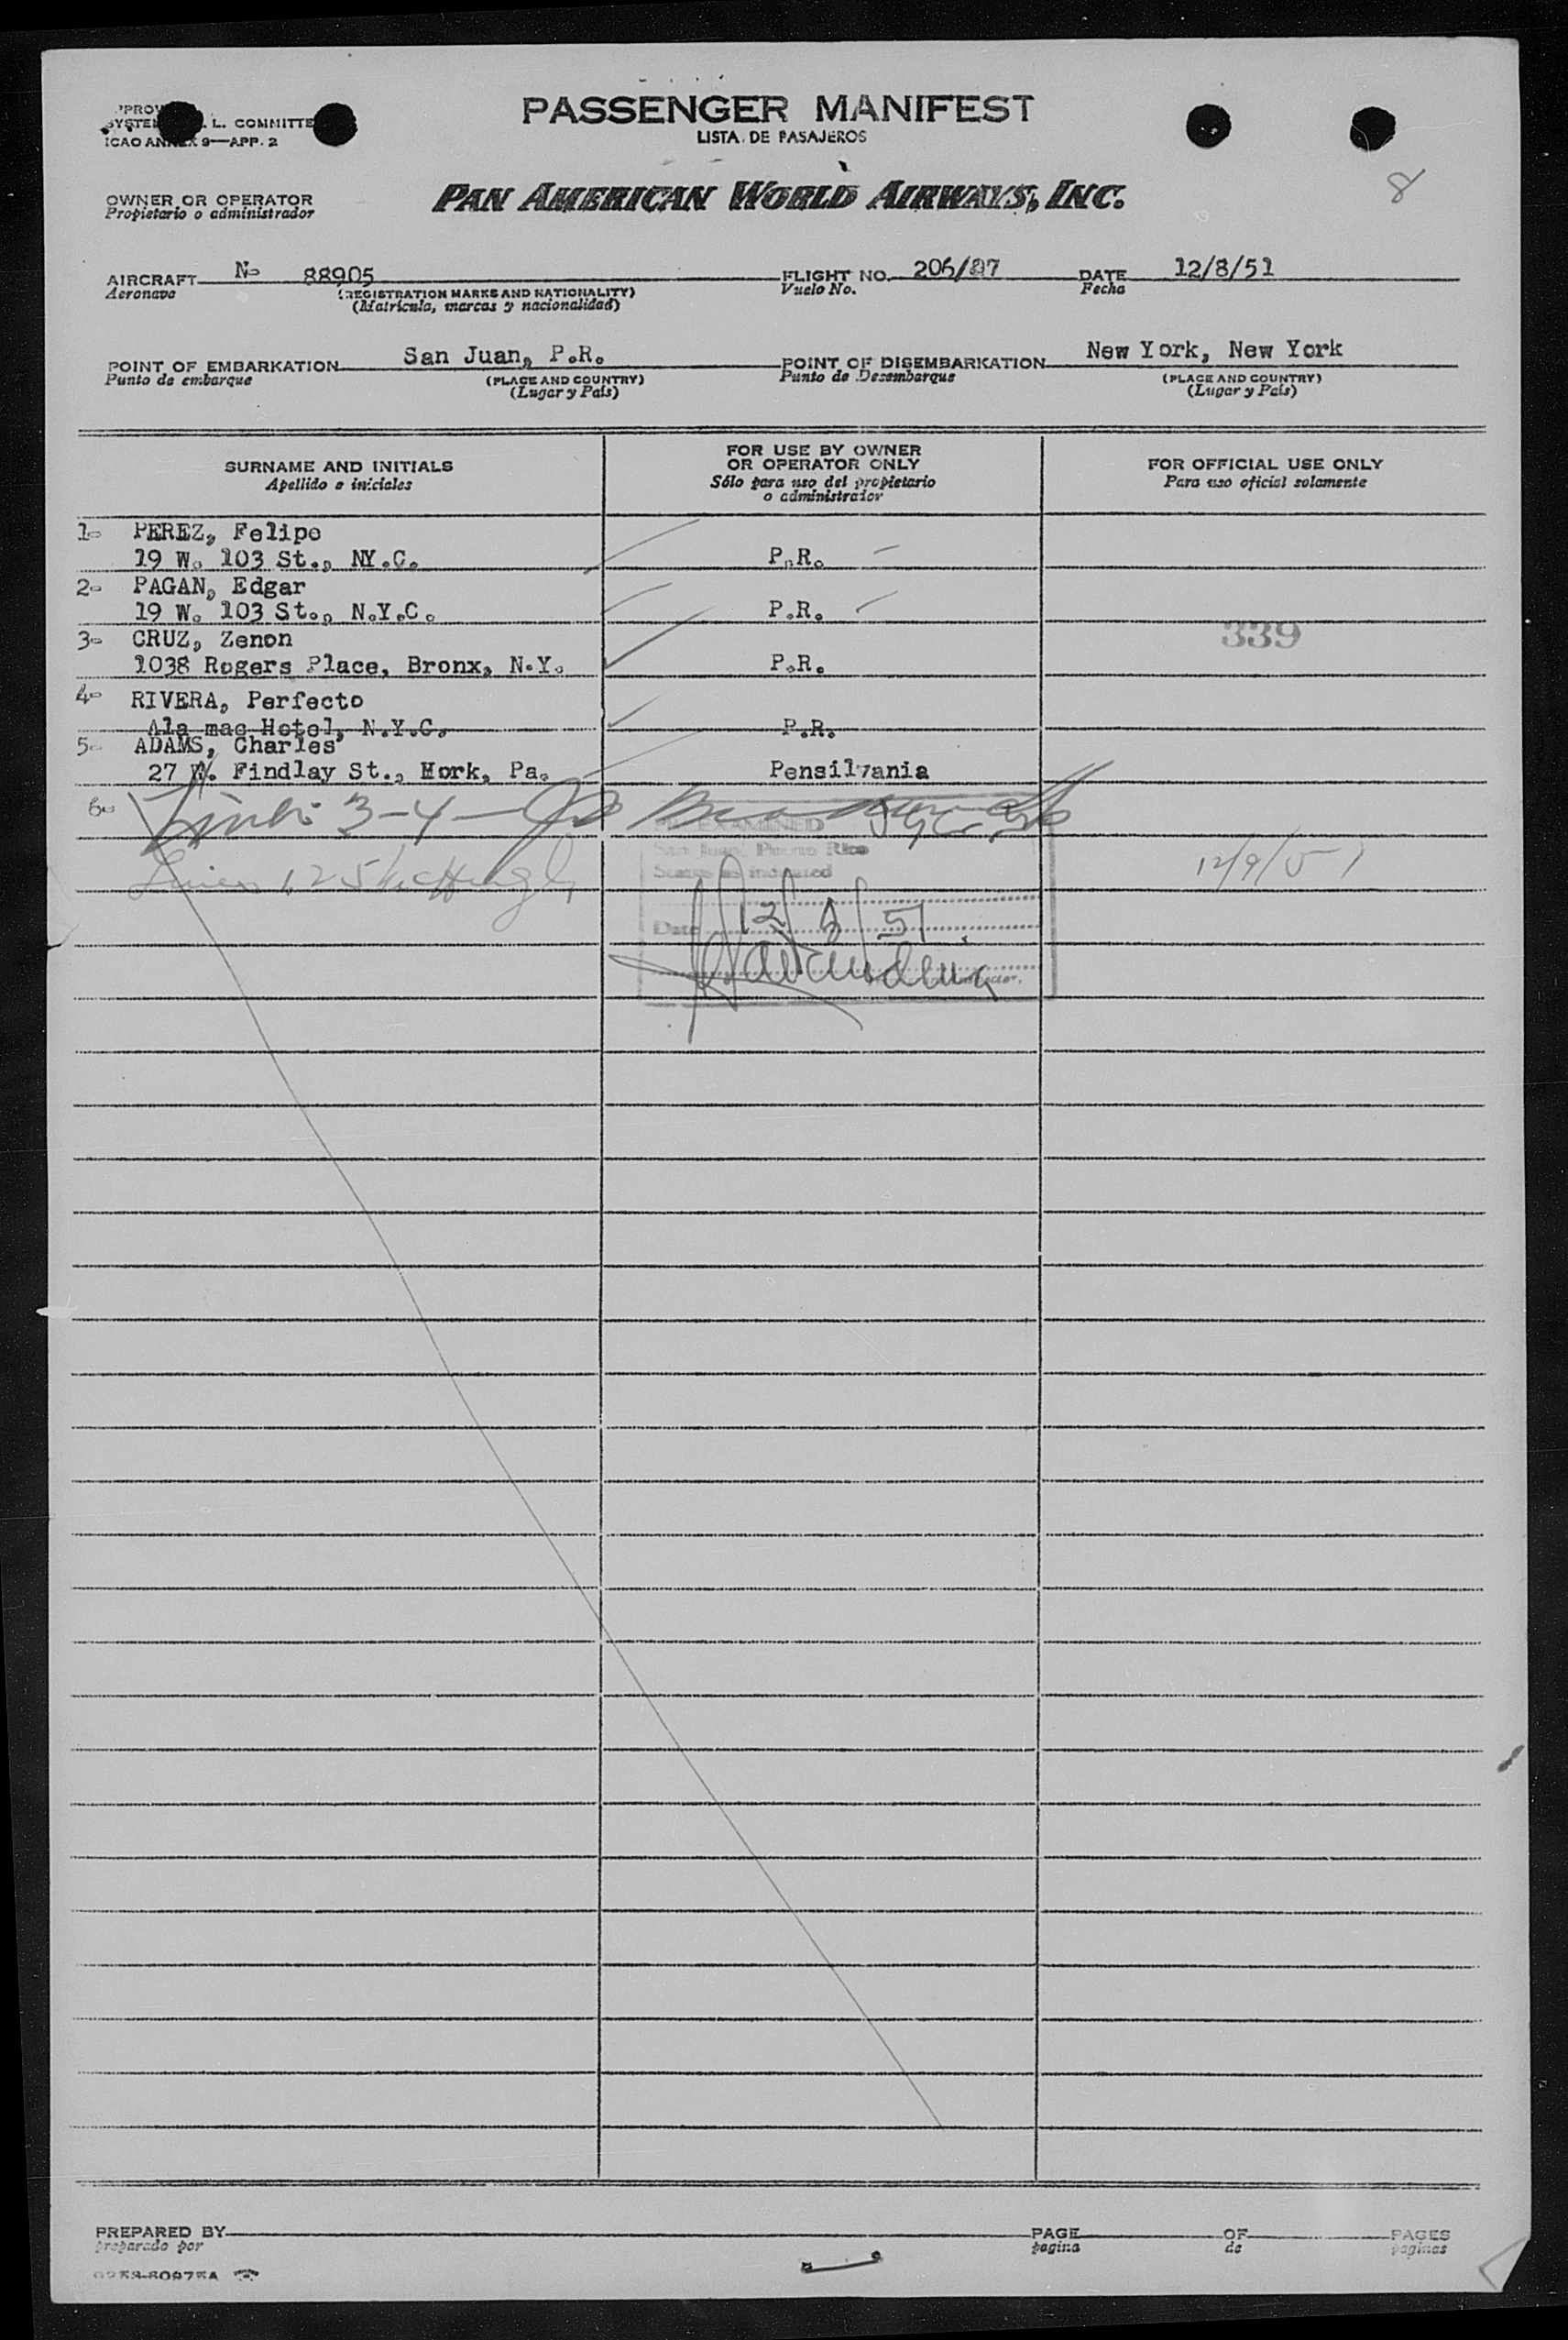 PASSENGER MANIFEST
LISTA DE PASAJEROS
L. COMMITTE
ICAO ANNEX 9—APP. 2
OWNER OR OPERATOR
Propietario o administrador
PAN AMERICAN WORLD AIRWAYS, INC.
8
AIRCRAFT No 88905
Aeronave
(REGISTRATION MARKS AND NATIONALITY)
(Matricula, marcas y nacionalidad)
FLIGHT NO. 206/87
Vuelo No.
DATE 12/8/51
Fecha
POINT OF EMBARKATION San Juan, P.R.
Punto de embarque
(PLACE AND COUNTRY)
(Lugar y País)
POINT OF DISEMBARKATION New York, New York
Punto de Desembarque
(PLACE AND COUNTRY)
(Lugar y País)
SURNAME AND INITIALS
Apellido e iniciales
FOR USE BY OWNER
OR OPERATOR ONLY
Sólo para uso del propietario
o administrador
FOR OFFICIAL USE ONLY
Para uso oficial solamente
1- PEREZ, Felipe
19 W. 103 St., NY.C. P.R.
2- PAGAN, Edgar
19 W. 103 St., N.Y.C. P.R.
3- CRUZ, Zenon
339
1038 Rogers Place, Bronx, N.Y. P.R.
4- RIVERA, Perfecto
Ala mac Hotel, N.Y.C. P.R.
5- ADAMS, Charles
27 W. Findlay St., Hork, Pa. Pensilvania
6-
3-4-
EXAMINED
San Juan, Puerto Rico
Status as indicated
12/9/51
Date 12/8/51
PREPARED BY
preparado por
PAGE
pagina
OF
de
PAGES
paginas